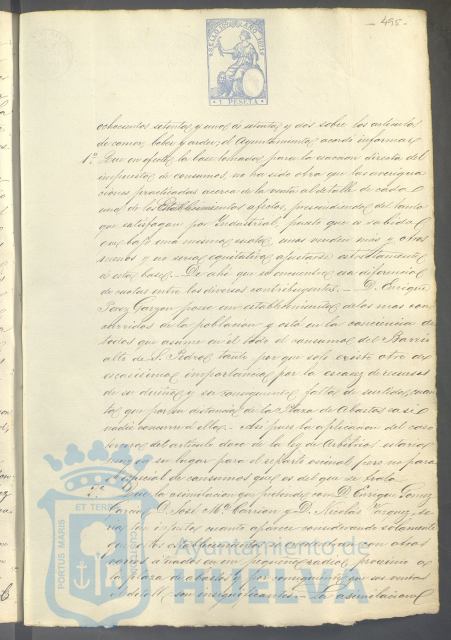 - 495 -
SELLO 11º AÑO 1871
1 PESETA
ochocientos setenta y uno á setenta y dos sobre los artículos
de comer, beber y arder; el Ayuntamiento acordó informar
1º Que en efecto la base tomada para la exaccion directa del
impuesto de consumos, no ha sido otra que las averigua
ciones practicadas acerca de la venta al detalle de cada
uno de los Establecimientos afectos, prescindiendo del tanto
que satisfagan por Industrial, puesto que es sabido
que bajo una misma cuota, unos venden más y otros
menos y no seria equitativo ajustarse estrictamente
á esta base. - De ahí que se encuentre esa diferencia
de cuotas entre los diversos contribuyentes. - D. Enrique
Perez Garzon posee un establecimiento de los mas con
curridos de la poblacion y está en la conciencia de
todos que asume en él todo el consumo del Barrio
alto de S. Pedro, tanto por que solo existe otro de
escasisima importancia por la escasez de recursos
de su dueño y su consiguiente falta de surtido, cuan
to que por su distancia de la Plaza de Abastos casi
nadie concurre á ella. - Asi pues la aplicacion del caso
del articulo doce de la ley de Arbitrios, estaria
en su lugar para el reparto vecinal pero no para
el especial de consumos que es del que se trata.
2º Que la asimilacion que pretende con D. Enrique Gomez
Garcia, D. José Mª Carrion y D. Nicolás Vazquez, se
infundada cuanto aparece considerando solamente
establecimientos con otros
varios situados en un pequeño radio, proximo á
la plaza de abastos y por consiguiente que sus ventas
son insignificantes. - La asimilacion
PORTUS MARIS ET TERRE CUSTODIA
Ayuntamiento de
HUELVA